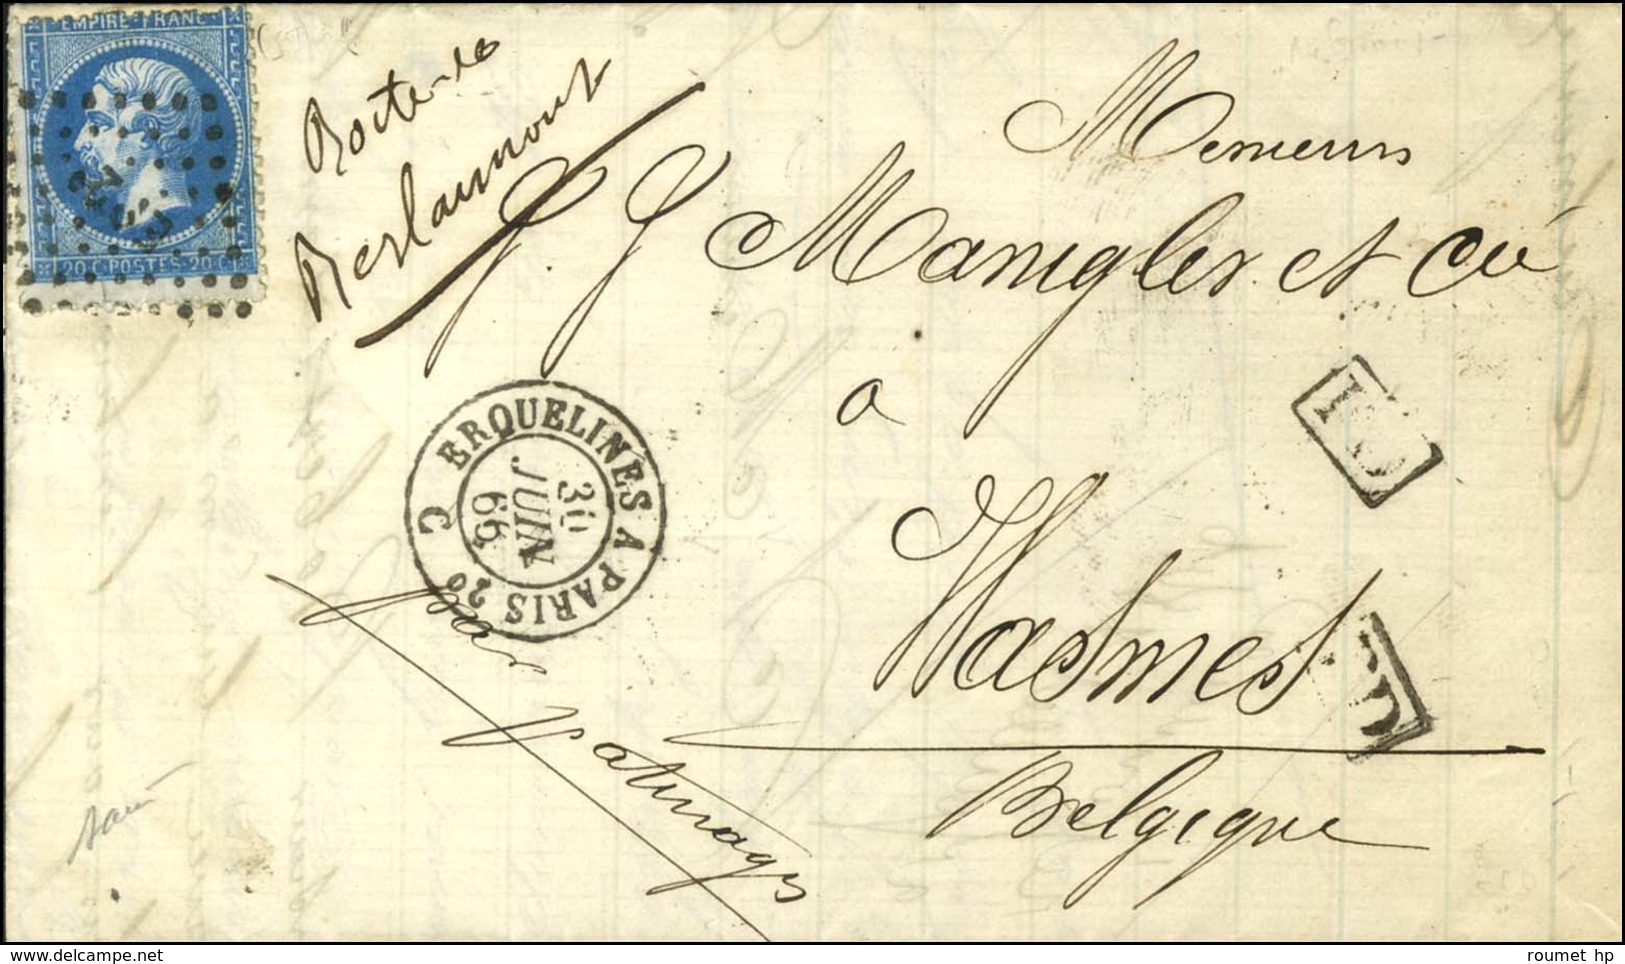 EMPIRE FRANC
20 C POSTES 20 C
Boite de
Berlaimont
Messieurs
J. J. Manigler et Cie
a
Wasmes
Belgique
par Paturages
ERQUELINES A PARIS 2°
C
30
JUIN
66
PD
roumet hp